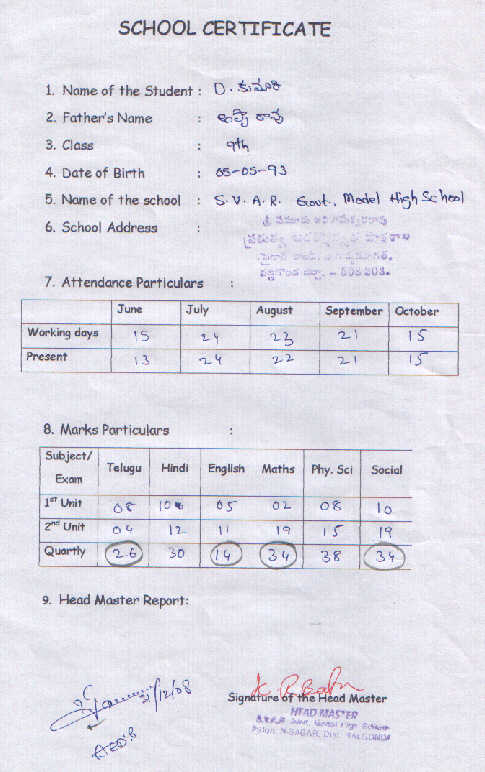 SCHOOL CERTIFICATE
1. Name of the Student : D. కుమారి
2. Father's Name : రావు
3. Class : 9th
4. Date of Birth : 05-05-93
5. Name of the school : S.V.A.R. Govt., Model High School
6. School Address :
7. Attendance Particulars :
June July August September October
Working days 15 24 23 21 15
Present 13 24 22 21 15
8. Marks Particulars :
Subject/ Exam Telugu Hindi English Maths Phy. Sci Social
1st Unit 08 10 05 02 08 10
2nd Unit 04 12 11 19 15 19
Quartly 26 30 14 34 38 34
9. Head Master Report:
2/12/08
Signature of the Head Master
HEAD MASTER
Govt. Model High School
N-SAGAR, Dist. NALGONDA